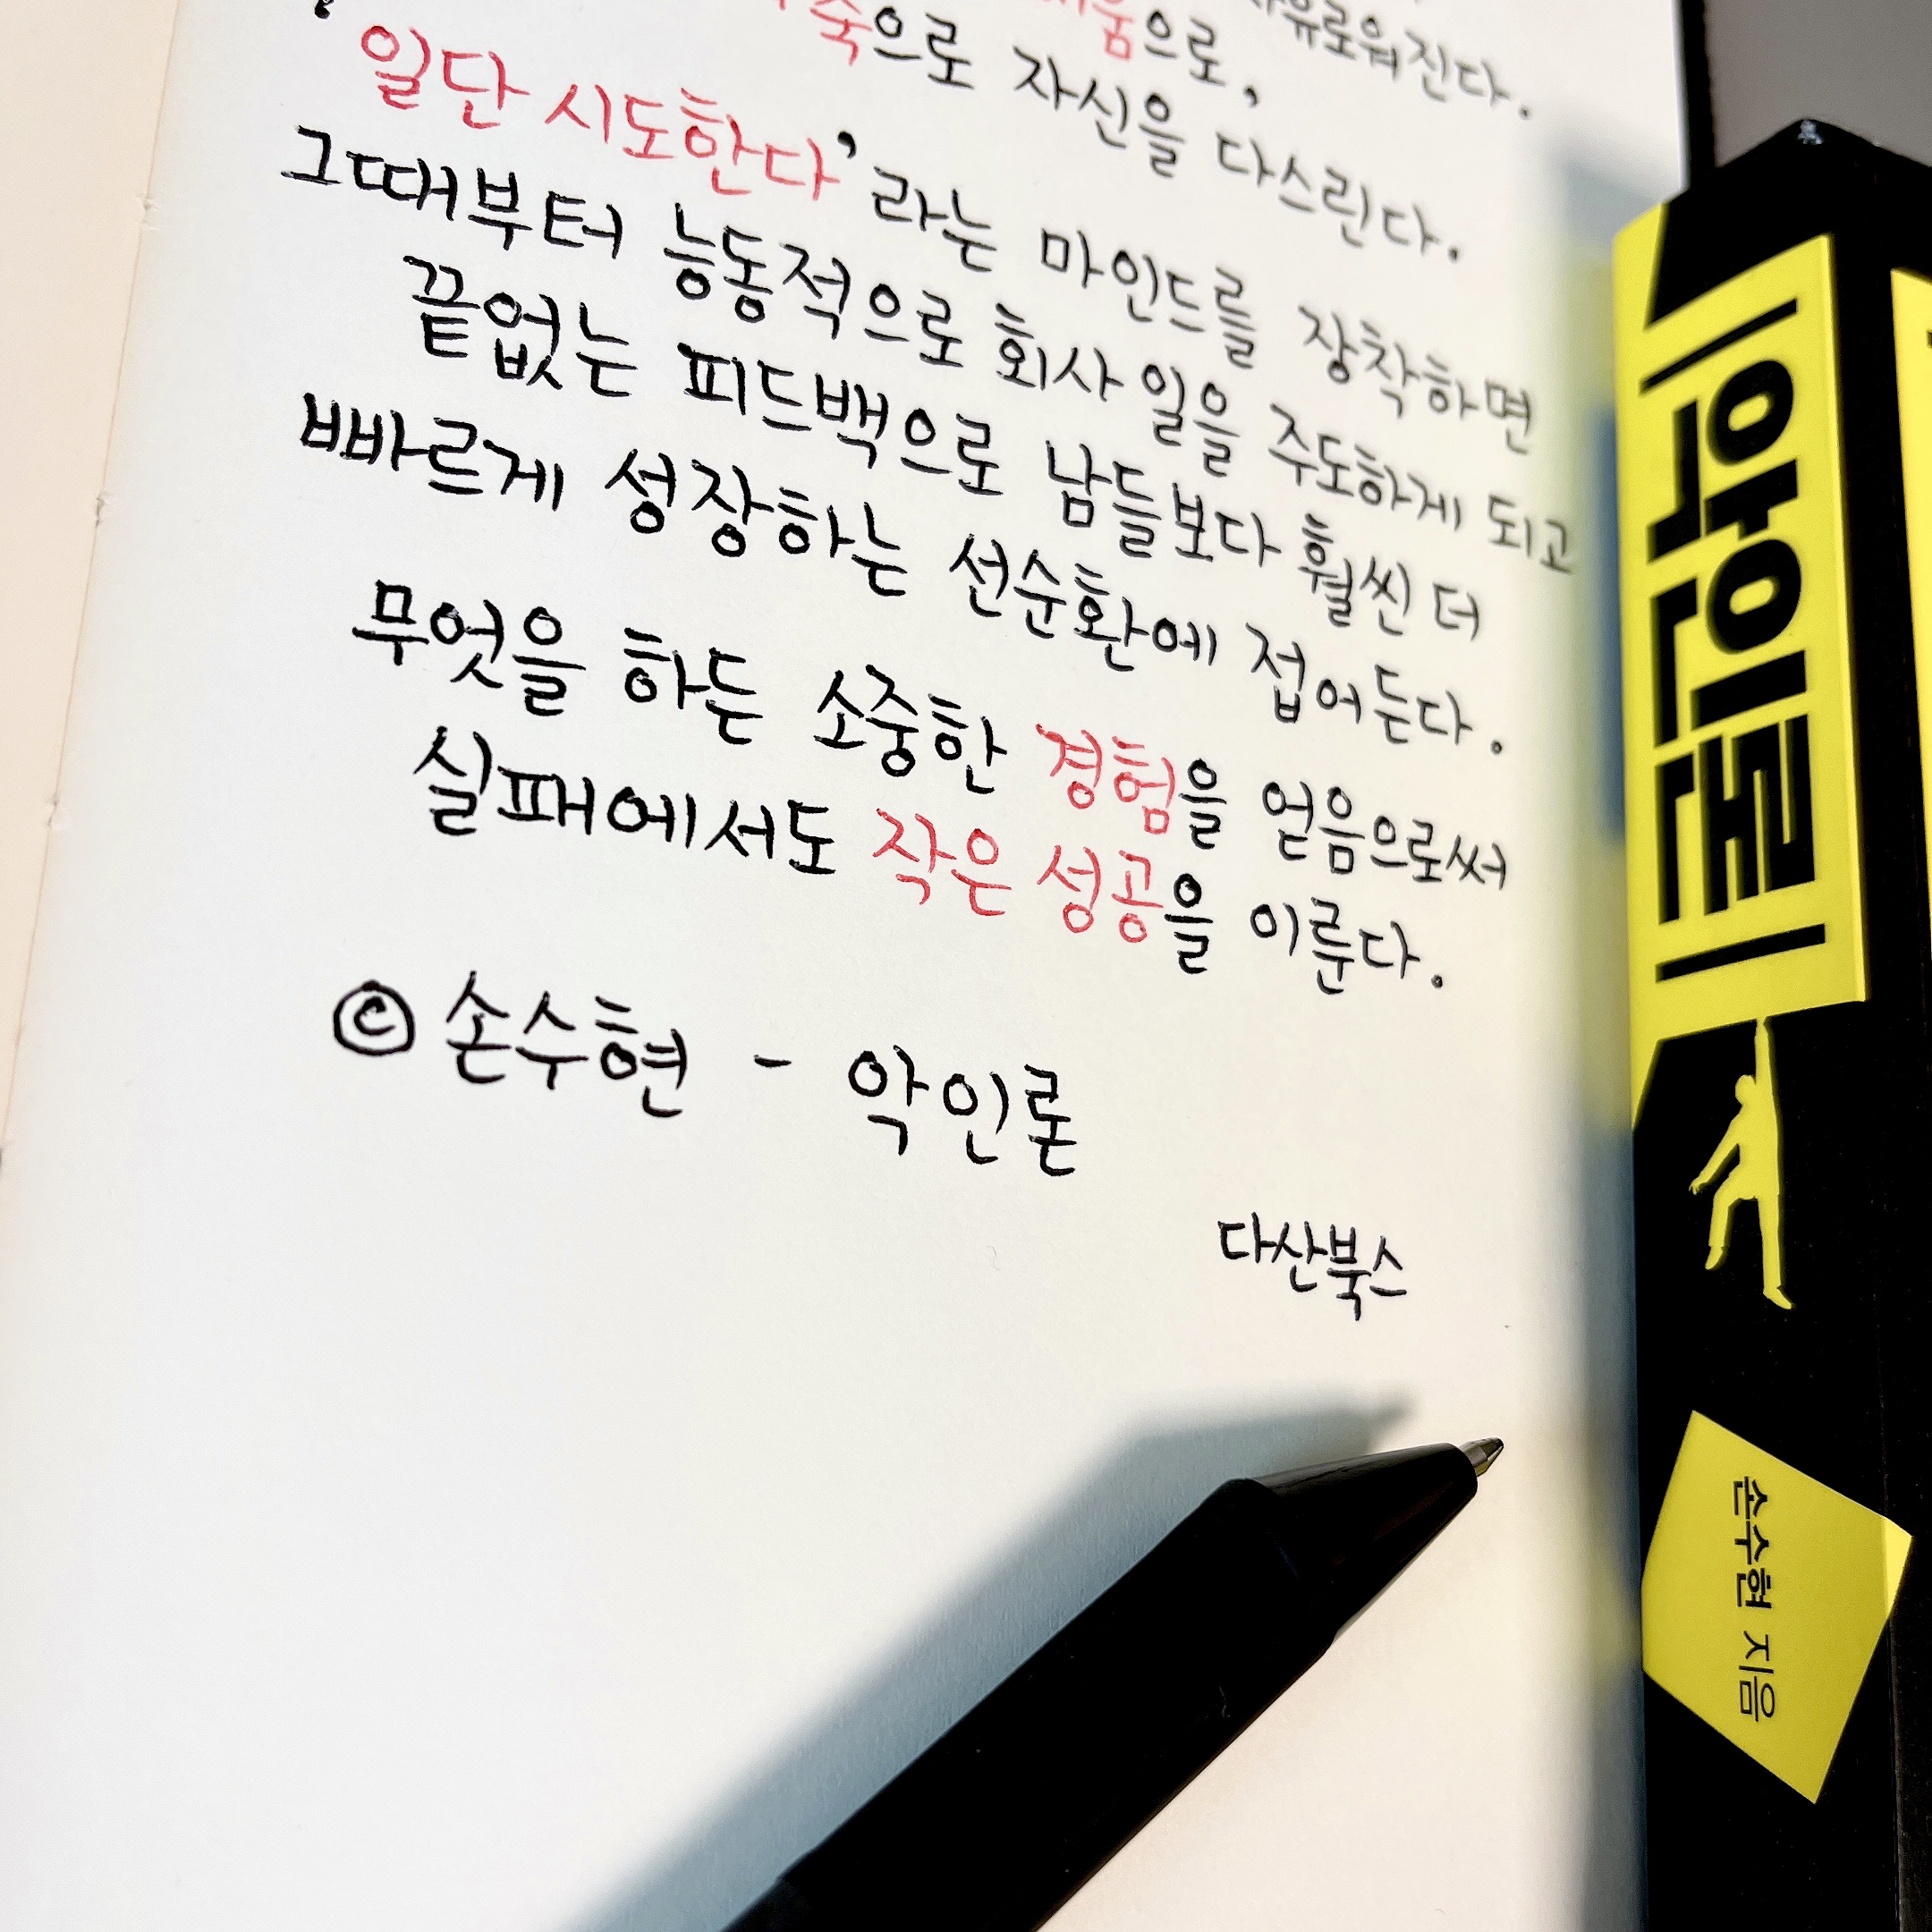 으로,
으로 자신을 다스린다.
일단 시도한다'라는 마인드를 장착하면
그때부터 능동적으로 회사 일을 주도하게 되고
끝없는 피드백으로 남들보다 훨씬 더
빠르게 성장하는 선순환에 접어든다.
무엇을 하든 소중한 경험을 얻음으로써
실패에서도 작은 성공을 이룬다.
© 손수현 - 악인론
다산북스
악인론
손수현 지음